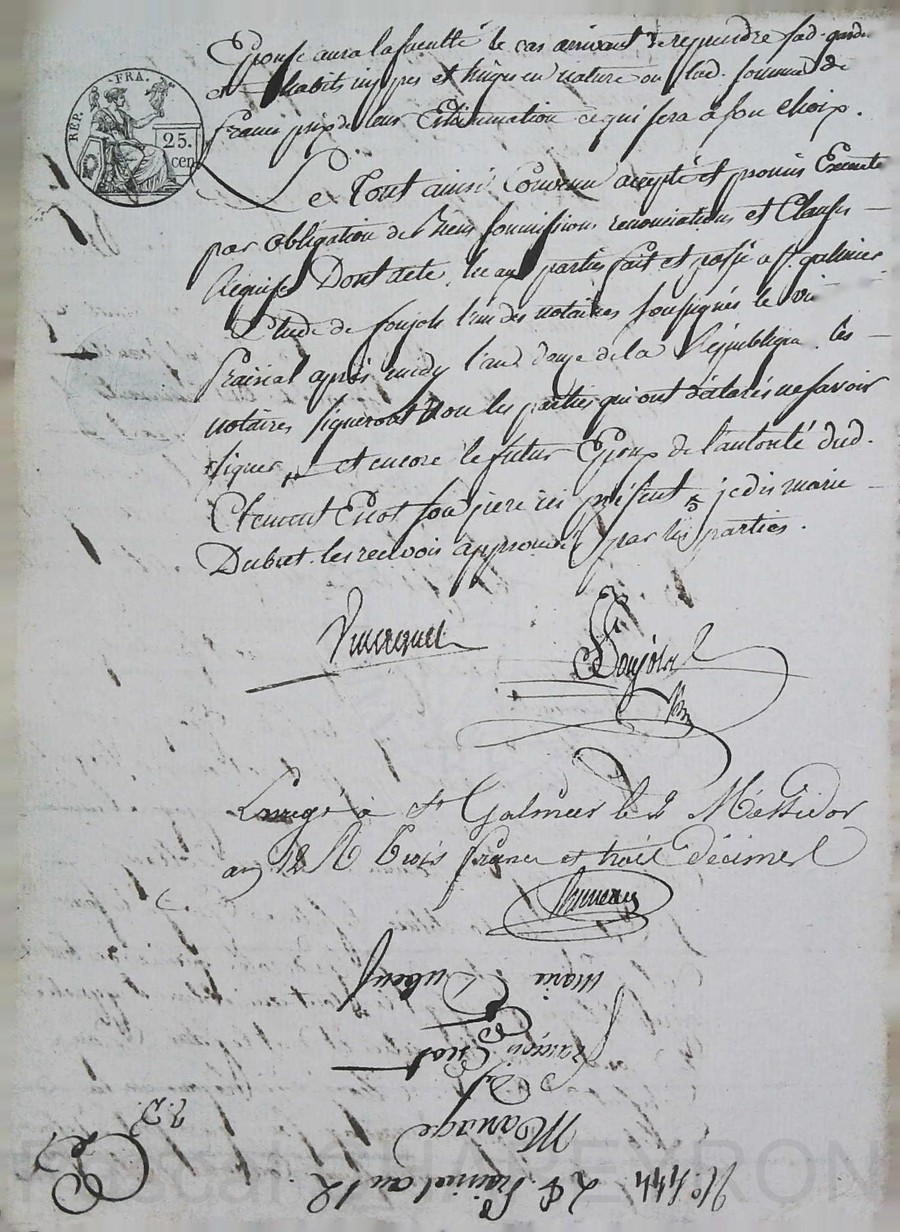 RÉP. FRA.
25.
cen
Epouse aura la faculté le cas arrivant de reprendre sad. garde
et habits nippes et linges en nature ou lad. somme de
francs prix de leur Estimation ce qui sera à son choix.
Le Tout ainsi Convenu accepté et promis Executé
par obligation de Biens soumissions renonciations et Clauses
Requises Dont acte, lu aux parties fait et passé a St. galmier
Etude de Soujols l'un des notaires soussignés le
prairial après midy l'an douze de la République. les
notaires signeront non les parties qui ont déclarés ne savoir
signer et encore le futur Epoux de l'autorité dud.
Clement son pere ici présent, je dis marie
les renvois approuvés par les parties.
Soujols
à St Galmier le 2 Méssidor
an 12 R trois francs et trois décimes
N° 144 28 Prairial an 12
Mariage
De
François
&
Marie Dubœuf